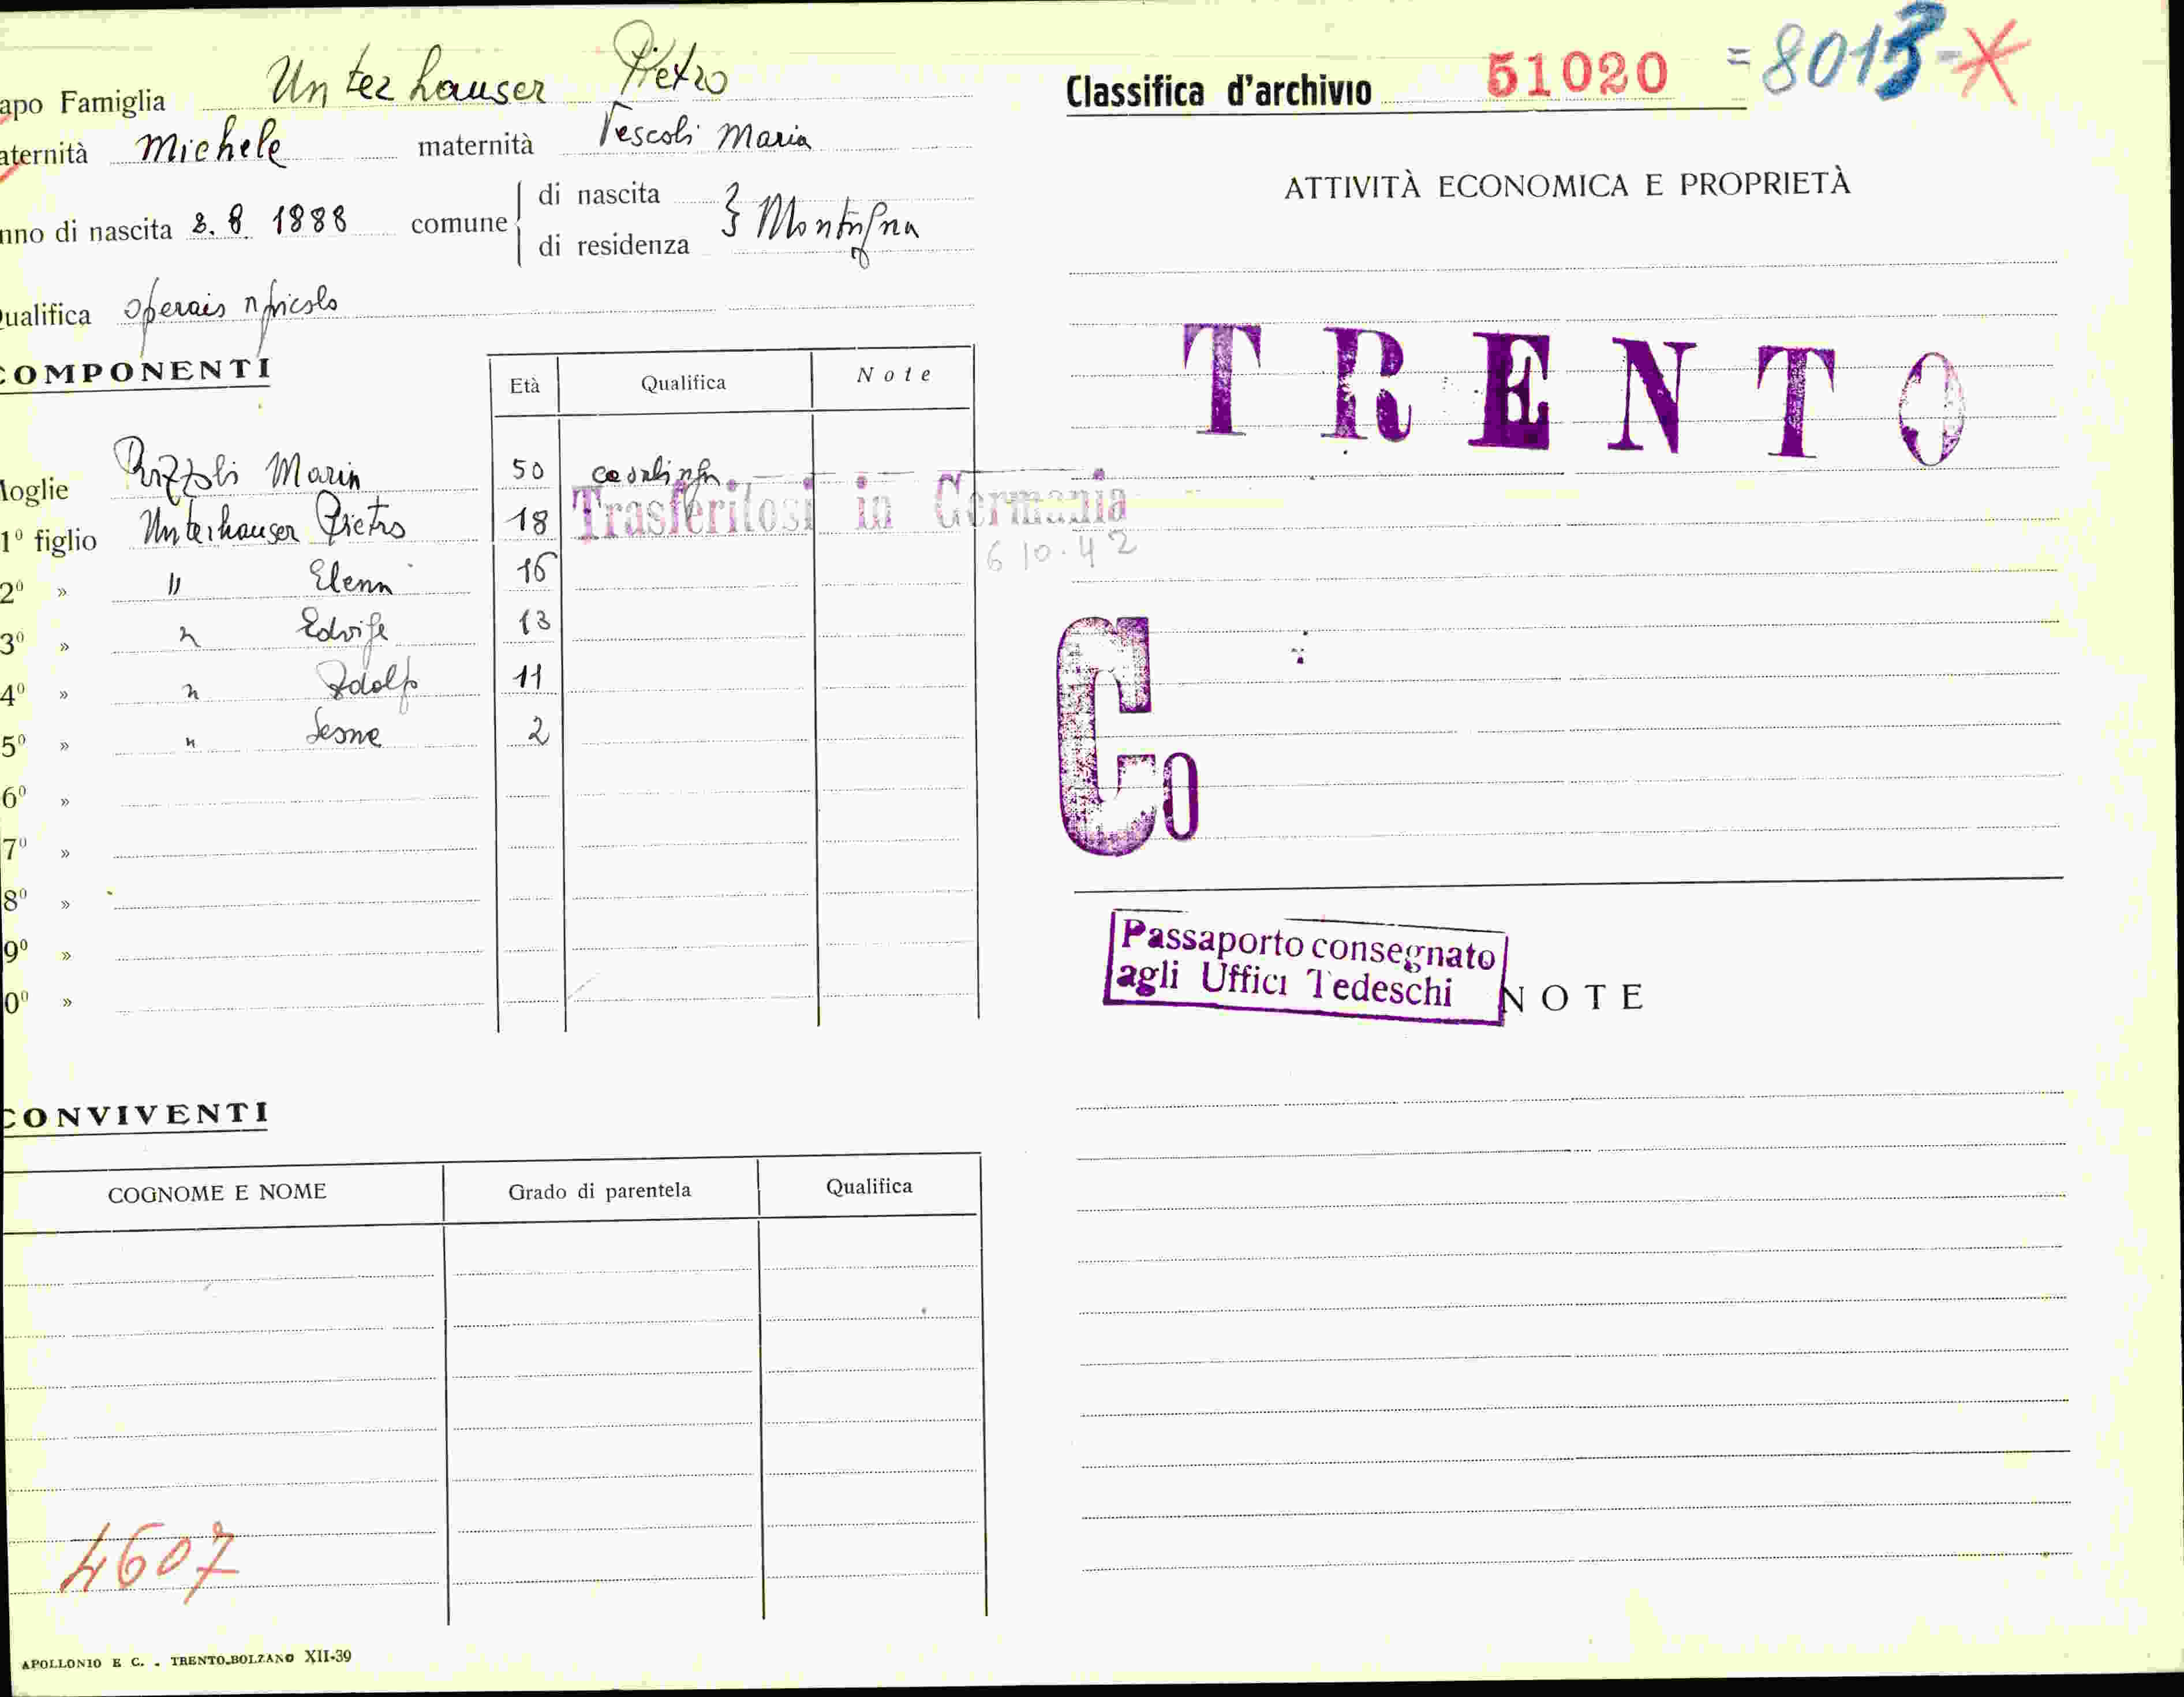 apo Famiglia Unterhauser Pietro
aternità Michele maternità Tescoli Maria
nno di nascita 8. 8. 1888 comune di nascita
di residenza } Montagna
ualifica operaio agricolo
COMPONENTI
Età Qualifica Note
Moglie Maria 50 casalinga
1º figlio Unterhauser Pietro 18
Trasferitosi in Germania
6 10.42
2º » " Elena 16
3º » " Edvige 13
4º » " Adolfo 11
5º » " 2
6º »
7º »
8º »
9º »
0º »
CONVIVENTI
COGNOME E NOME Grado di parentela Qualifica
4607
APOLLONIO E C. - TRENTO-BOLZANO XII-39
Classifica d'archivio 51020 = 8013-X
ATTIVITÀ ECONOMICA E PROPRIETÀ
TRENTO
Co
Passaporto consegnato
agli Uffici Tedeschi
NOTE